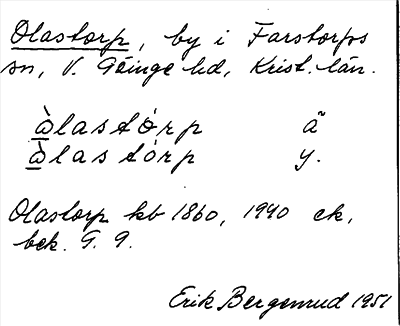 Olastorp, by i Farstorps
sn, V. Göinge hd, Krist. län.
òlastórp ã
òlastórp y.
Olastorp kb 1860, 1940 ek,
bek. G. 9.
Erik Bergenrud 1951